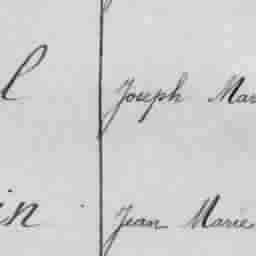 l Joseph Mar
in Jean Marie